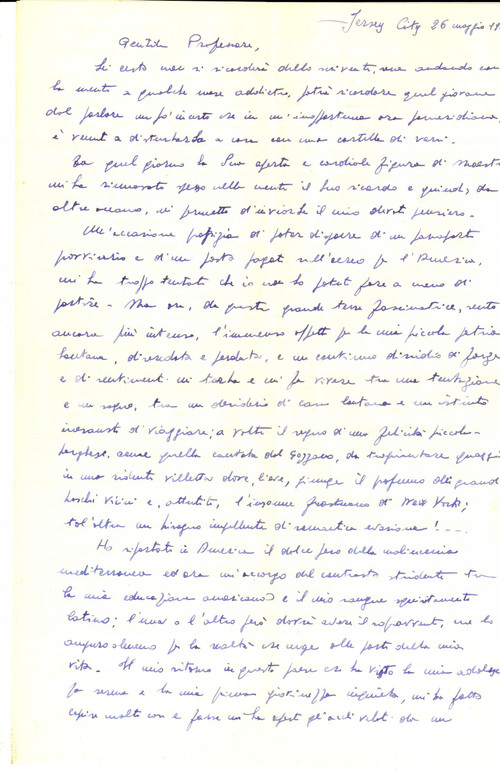 Jersey City 26 maggio 19
Gentile Professore,
Lei certo non si ricorderà dello scrivente, ma andando con
la mente a qualche mese addietro, potrà ricordare quel giovane
dal parlare un po' incerto che in un'inopportuna ora pomeridiana,
è venuto a disturbarla a casa con una cartella di versi.
Da quel giorno la Sua aperta e cordiale figura di maestro
mi ha rinnovato spesso nella mente il Suo ricordo e quindi, da
oltre oceano, mi permetto d'inviarle il mio devoto pensiero.
Un'occasione propizia di poter disporre di un passaporto
provvisorio e di un posto pagato sull'aereo per l'America,
mi ha troppo tentato che io non ho potuto fare a meno di
partire - Ma ora, da questa grande terra fascinatrice, sento
ancora più intenso, l'immenso affetto per la mia piccola patria
lontana, e un continuo dissidio di forze
e di sentimenti mi turba e mi fa vivere tra una tentazione
e un sogno, tra un desiderio di casa lontana e un istinto
inesausto di viaggiare; a volte il sogno di una felicità piccolo-
borghese, come quella cantata dal Gozzano, da trapiantare quaggiù
in una ridente villetta dove, lieve, giunge il profumo dei grandi
boschi vicini e, attutito, l'insonne frastuono di New York;
tal'altra un bisogno impellente di romantica evasione! ...
Ho riportato in America il dolce peso della malinconia
mediterranea ed ora m'accorgo del contrasto stridente tra
la mia educazione americana e il mio sangue squisitamente
latino; l'una o l'altro però dovrà avere il sopravvento, me lo
auguro almeno per la realtà che urge alle porte della mia
vita. Il mio ritorno in questo paese che ha visto la mia adolescen
za serena e la mia prima giovinezza inquieta, mi ha fatto
capire molte cose e forse mi ha aperto gli occhi velati da un